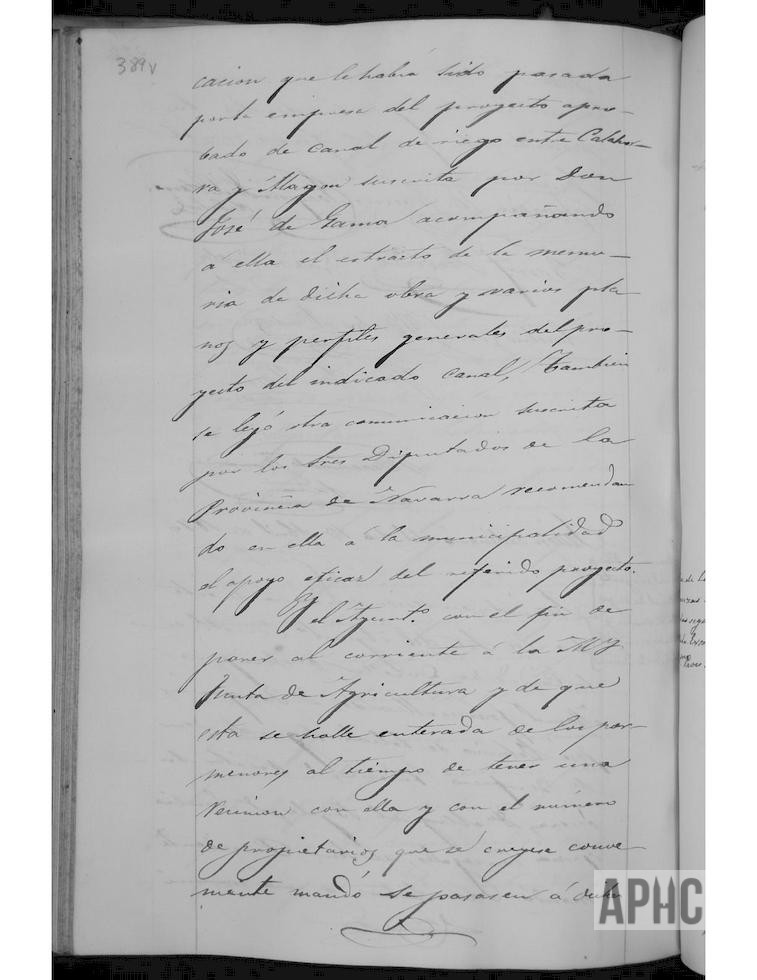 389v
cacion que le habia sido pasada
por la empresa del proyecto apro-
bado de canal de riego entre Calahor-
ra y Alagon suscrita por Don
José de Gama acompañando
a ella el estracto de la memo-
ria de dicha obra y varios pla-
nos y perfiles generales del pro-
yecto del indicado canal, Tambien
se leyó otra comunicacion suscrita
por los Sres Diputados de la
Provincia de Navarra recomendan
do en ella á la municipalidad
el apoyo eficaz del referido proyecto.
Y el Ayunt.º con el fin de
poner al corriente á la M Y
Junta de Agricultura y de que
esta se halle enterada de los por-
menores al tiempo de tener una
reunion con ella y con el número
de propietarios que se creyese conve-
niente mandó se pasasen á dicha
APHC